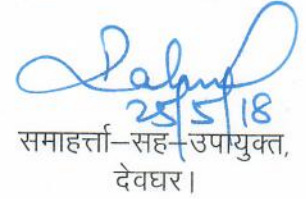 25/5/18
समाहर्त्ता–सह–उपायुक्त,
देवघर।